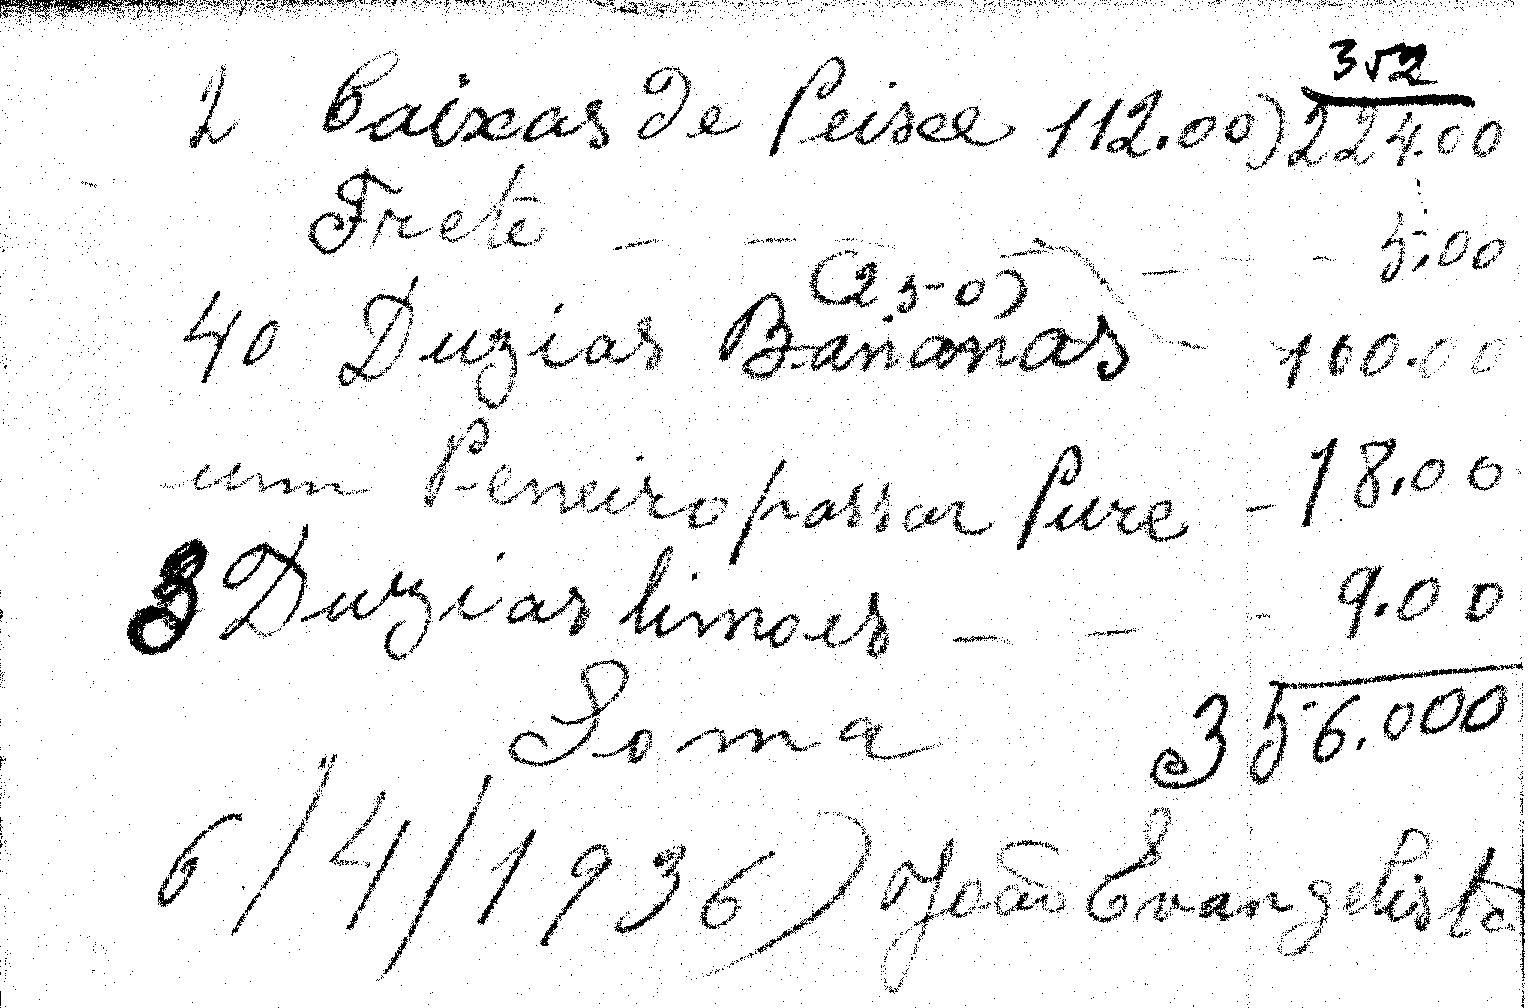 352
2 Caixas de Peisce 112.00) 224.00
Frete - - - - - - 5.00
(2500)
40 Duzias Bananas - 100.00
um Peneiro passar Pure - 18.00
3 Duzias limoes - - - 9.00
Soma 356.000
6/4/1936) João Evangelista